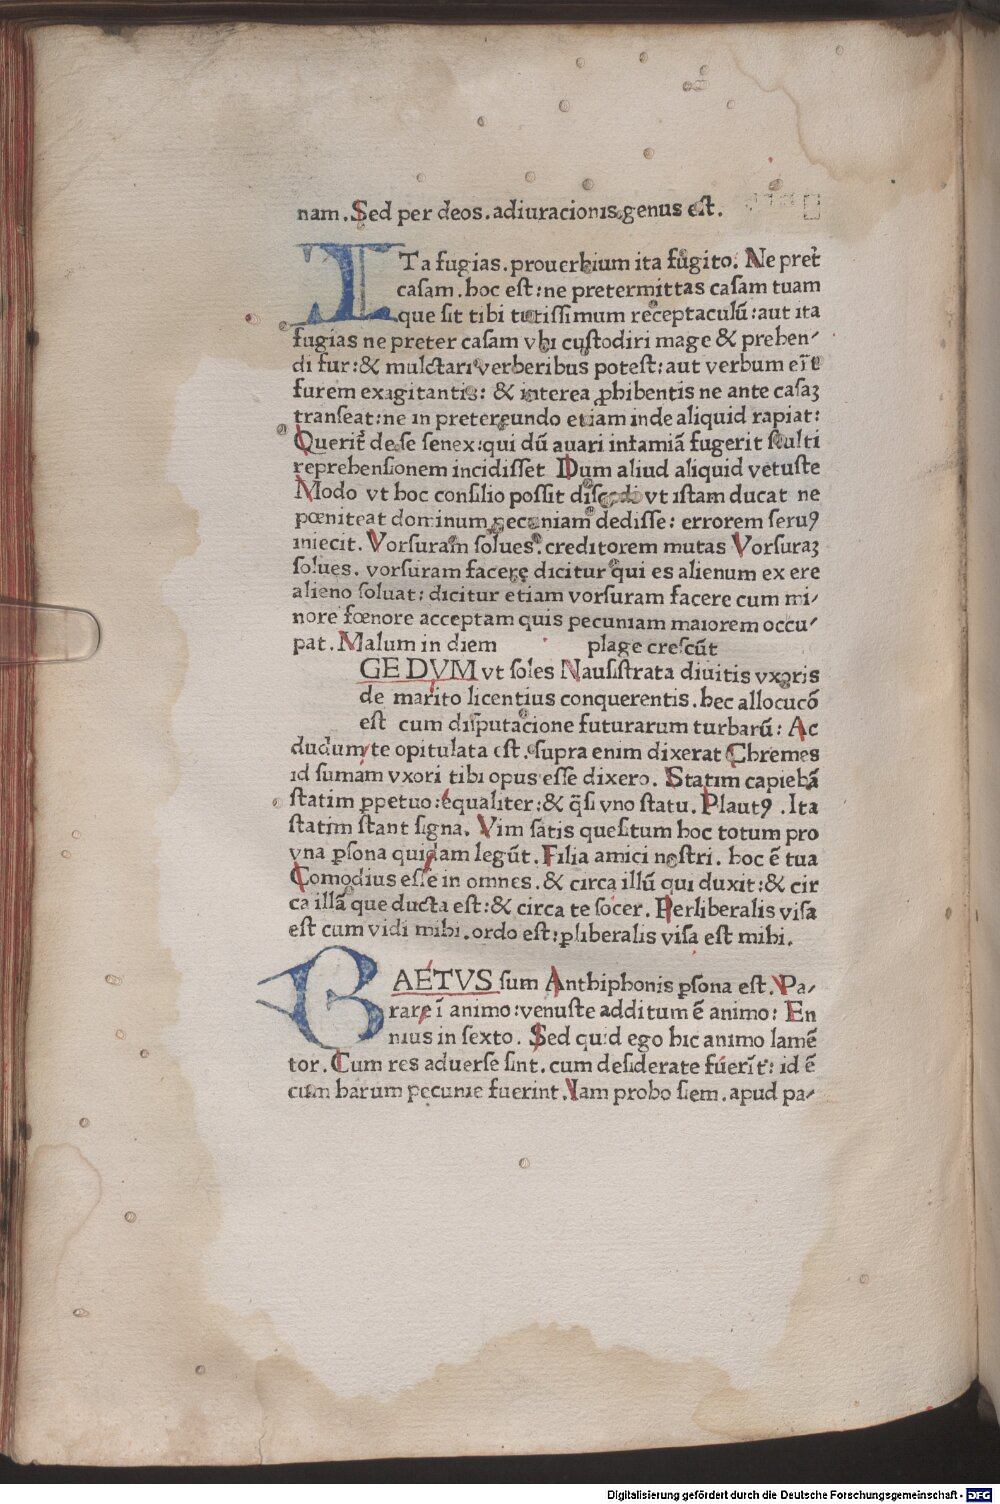 nam. Sed per deos. adiuracionis genus est.
ITa fugias. prouerbium ita fugito. Ne preť
casam. hoc est: ne pretermittas casam tuam
que sit tibi tutissimum receptaculū: aut ita
fugias ne preter casam vbi custodiri mage & prehen⸗
di fur: & mulctari verberibus potest: aut verbum
furem exagitantis: & interea ꝓhibentis ne ante casaꝫ
transeat: ne in pretereundo etiam inde aliquid rapiat:
Querit̉ de se senex: qui dū auari infamiā fugerit stulti
reprehensionem incidisset Dum aliud aliquid vetuste
Modo vt hoc consilio possit discedi vt istam ducat ne
pœniteat dominum pecuniam dedisse: errorem seruꝰ
iniecit. Vorsuram solues. creditorem mutas Vorsuraꝫ
solues. vorsuram facere dicitur qui es alienum ex ere
alieno soluat: dicitur etiam vorsuram facere cum mi⸗
nore fœnore acceptam quis pecuniam maiorem occu⸗
pat. Malum in diem plage crescūt
GE DVM vt soles Nausistrata diuitis vxoris
de marito licentius conquerentis. hec allocucō
est cum disputacione futurarum turbarū: Ac
dudum te opitulata est. supra enim dixerat Chremes
id sumam vxori tibi opus esse dixero. Statim capiebā
statim ꝑpetuo: equaliter: & q̄si vno statu. Plautꝰ. Ita
statim stant signa. Vim satis quesitum hoc totum pro
vna ꝑsona quidam legūt. Filia amici nostri. hoc ē tua
Comodius esse in omnes. & circa illū qui duxit: & cir
ca illā que ducta est: & circa te socer. Perliberalis visa
est cum vidi mihi. ordo est: ꝑliberalis visa est mihi.
AETVS sum Anthiphonis ꝑsona est. Pa⸗
rare ī animo: venuste additum ē animo: En
nius in sexto. Sed quid ego hic animo lamē
tor. Cum res aduerse sint. cum desiderate fuerīt: id ē
cum harum pecunie fuerint. Iam probo siem. apud pa⸗
Digitalisierung gefördert durch die Deutsche Forschungsgemeinschaft - DFG